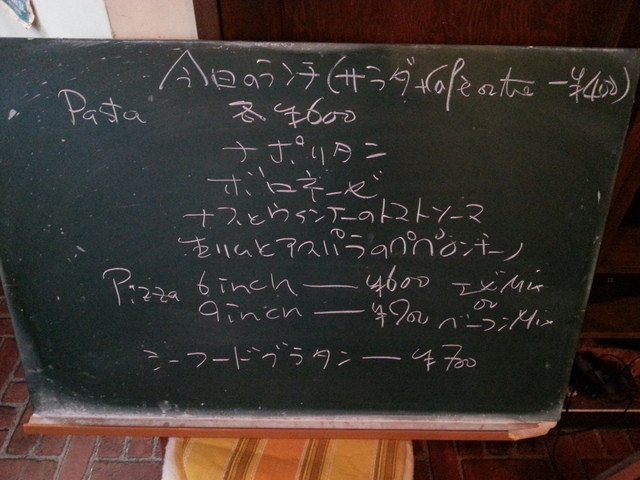 今日のランチ(サラダ+Cafe or the —¥400)
Pasta 各 ¥600
ナポリタン
ボロネーゼ
ナスとウィンナーのトマトソース
生ハムとアスパラのペペロンチーノ
Pizza 6inch — ¥600 エビMix
or
9inch — ¥900 ベーコンMix
シーフードグラタン — ¥700